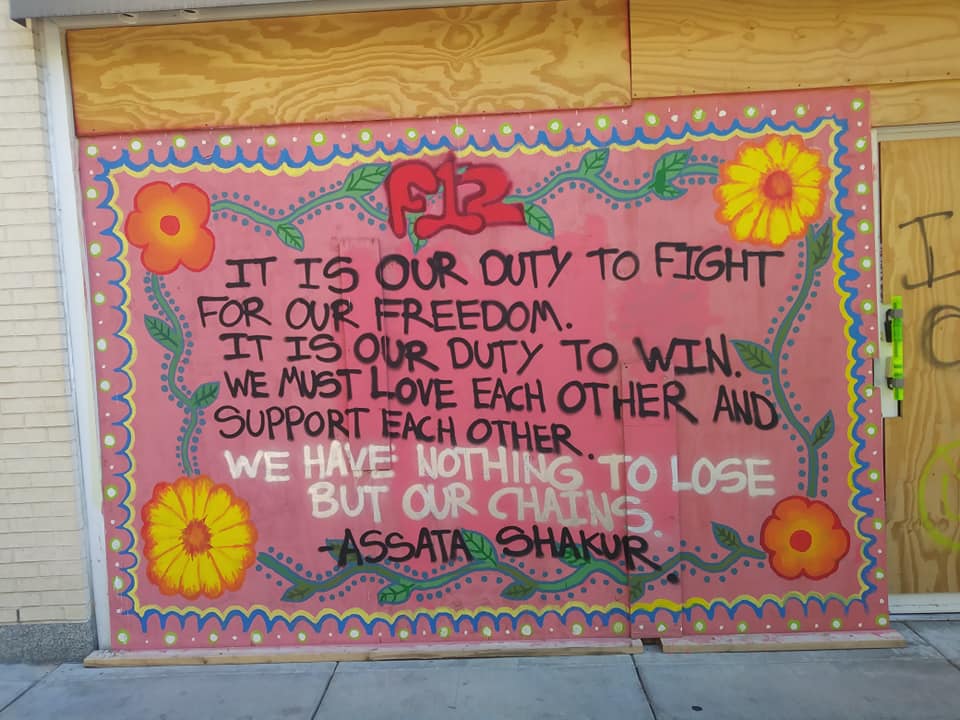 F12
IT IS OUR DUTY TO FIGHT
FOR OUR FREEDOM.
IT IS OUR DUTY TO WIN.
WE MUST LOVE EACH OTHER AND
SUPPORT EACH OTHER.
WE HAVE NOTHING TO LOSE
BUT OUR CHAINS.
-ASSATA SHAKUR.